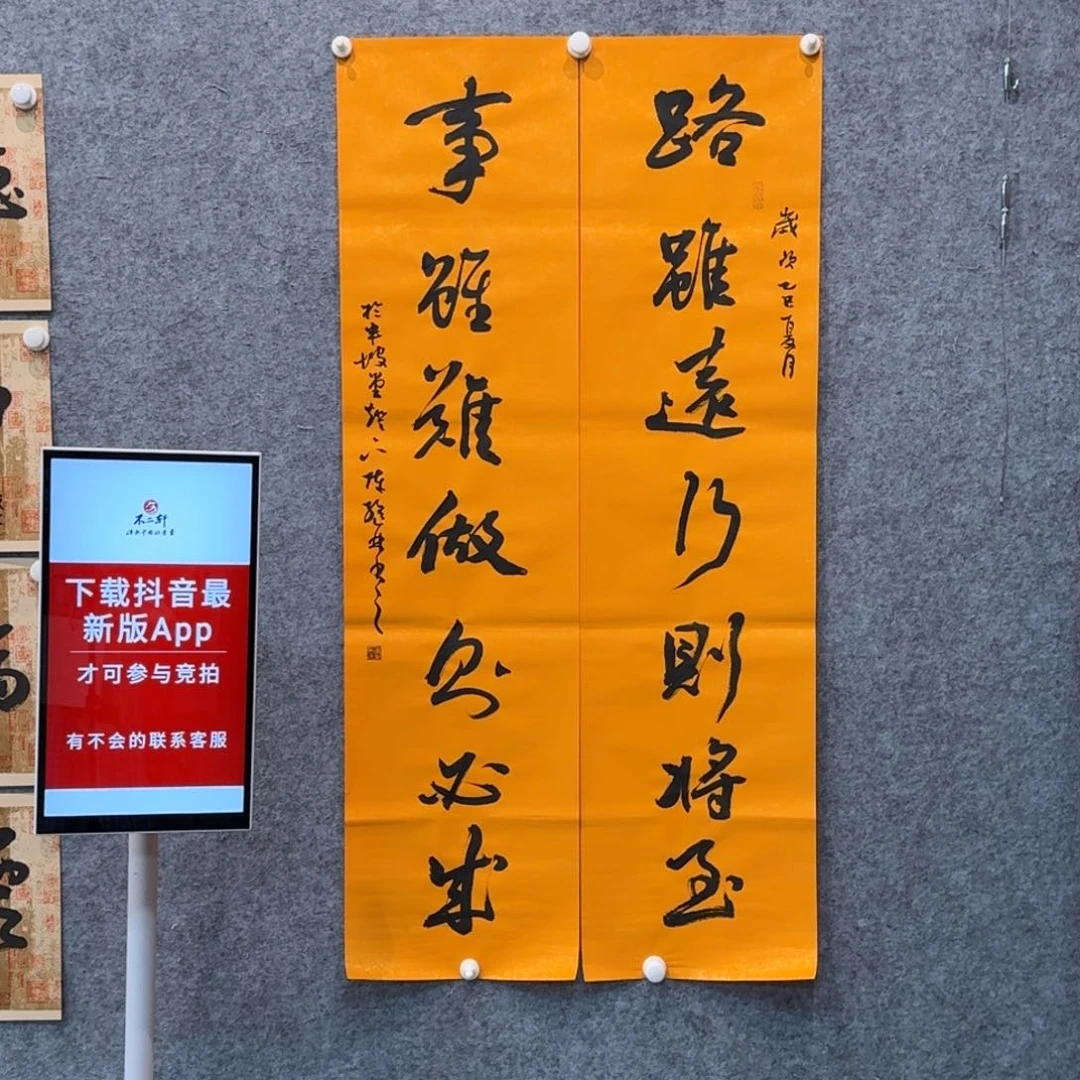 路雖遠行則將至
歲次乙巳夏月
事雖難做則必成
於半坡堂
不二轩
下载抖音最
新版App
才可参与竞拍
有不会的联系客服